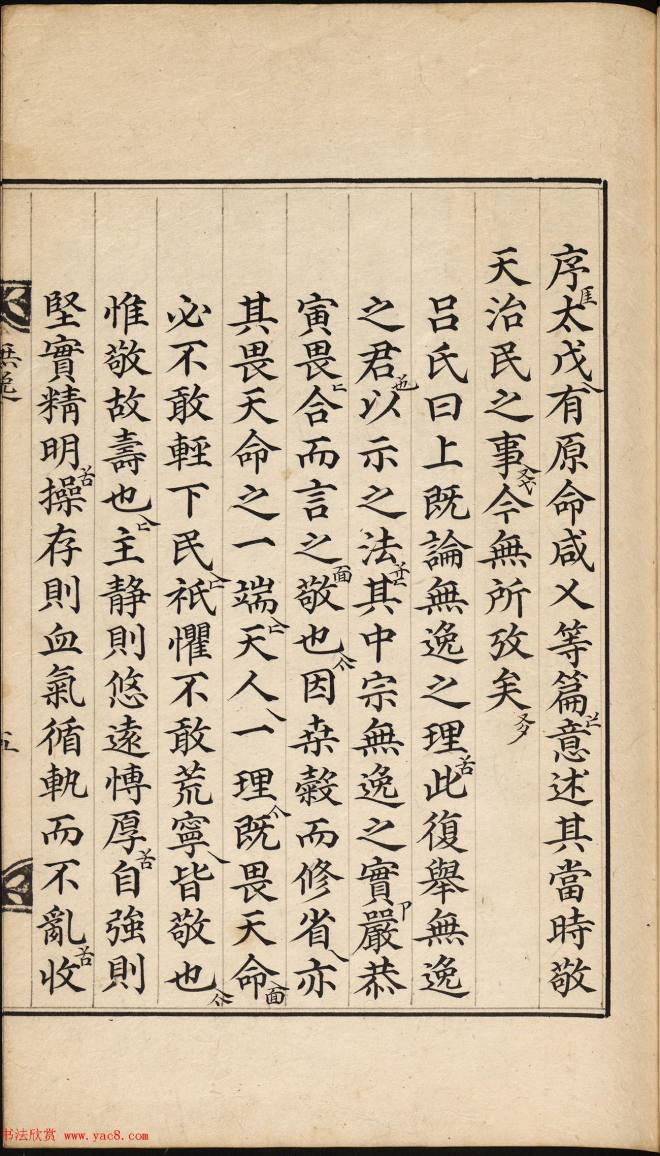 序太戊有原命咸乂等篇意述其當時敬
天治民之事今無所攷矣
呂氏曰上既論無逸之理此復舉無逸
之君以示之法其中宗無逸之實嚴恭
寅畏合而言之敬也因桒糓而修省亦
其畏天命之一端天人一理既畏天命
必不敢輕下民祇懼不敢荒寧皆敬也
惟敬故壽也主静則悠遠愽厚自強則
堅實精明操存則血氣循軌而不亂收
無逸
五
书法欣赏 www.yac8.com